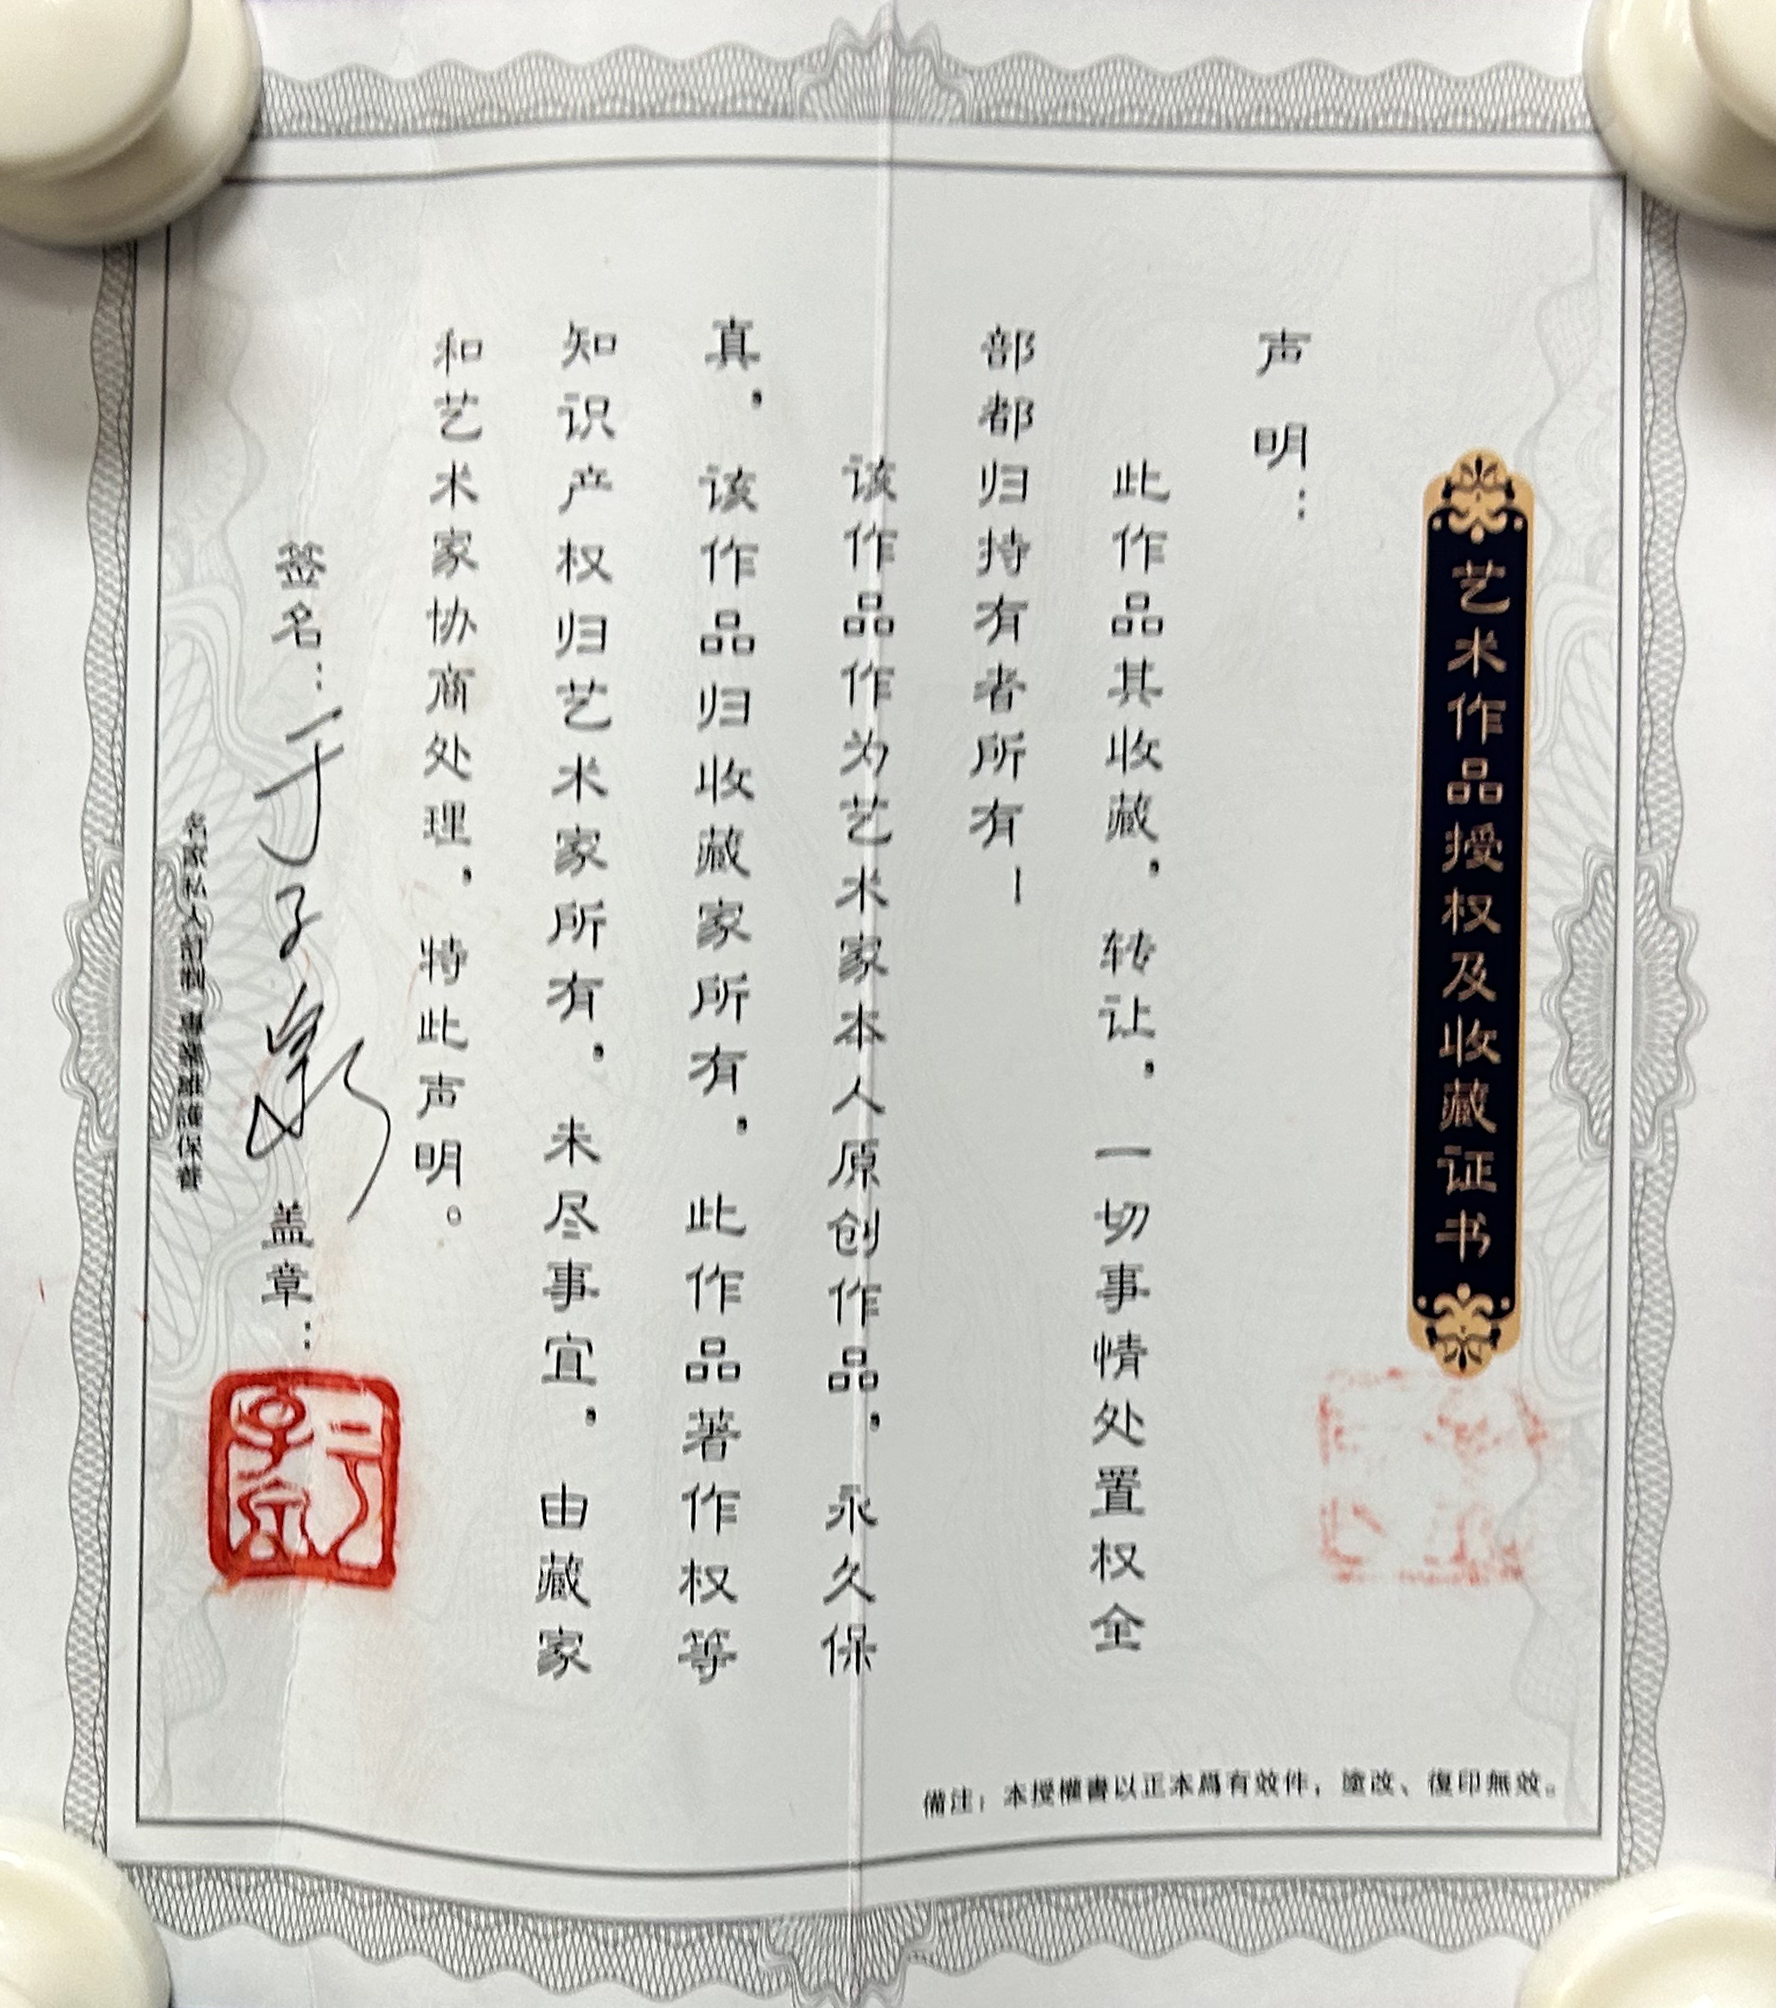 艺术作品授权及收藏证书
声明：
此作品其收藏，转让，一切事情处置权全
部都归持有者所有！
该作品作为艺术家本人原创作品，永久保
真，该作品归收藏家所有，此作品著作权等
知识产权归艺术家所有，未尽事宜，由藏家
和艺术家协商处理，特此声明。
签名：于子泉 盖章：
名家私人訂制 專業維護保養
備注：本授權書以正本爲有效件，塗改、復印無效。